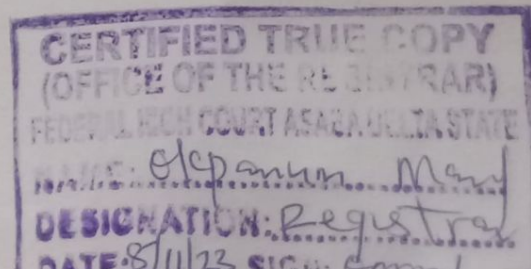 CERTIFIED TRUE COPY
(OFFICE OF THE REGISTRAR)
FEDERAL HIGH COURT ASABA DELTA STATE
NAME: Mary
DESIGNATION: Registrar
DATE: 8/11/23 SIGN: